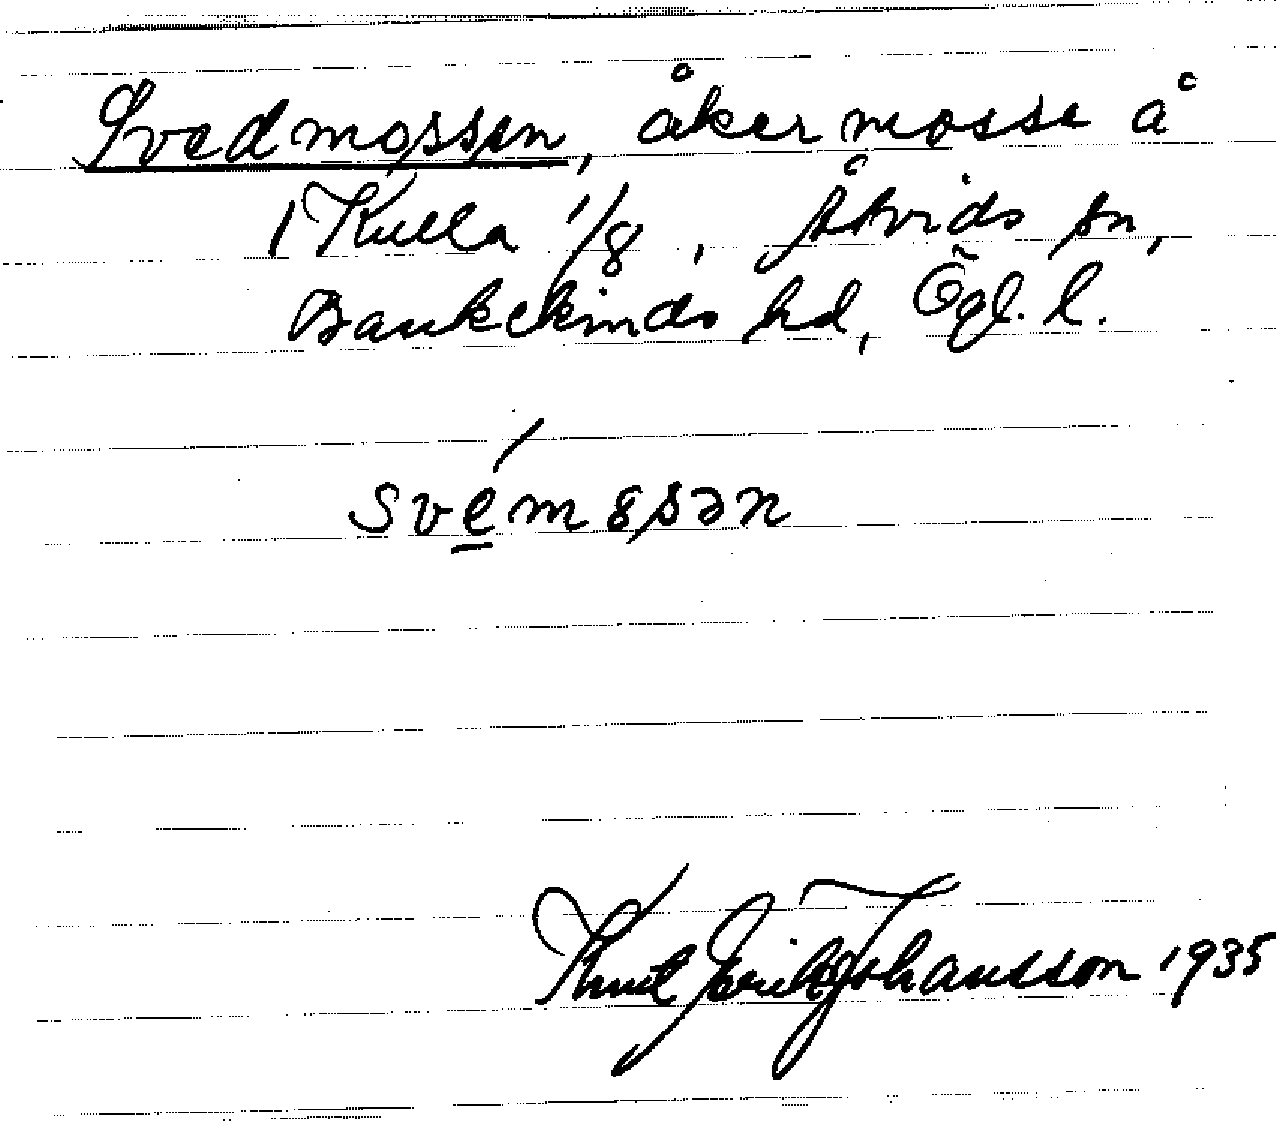 Svedmossen, åkermosse å
Kulla 1/8, Åtvids sn,
Bankekinds hd, Ögl. l.
svémȣsən
Knut Erik Johansson 1935